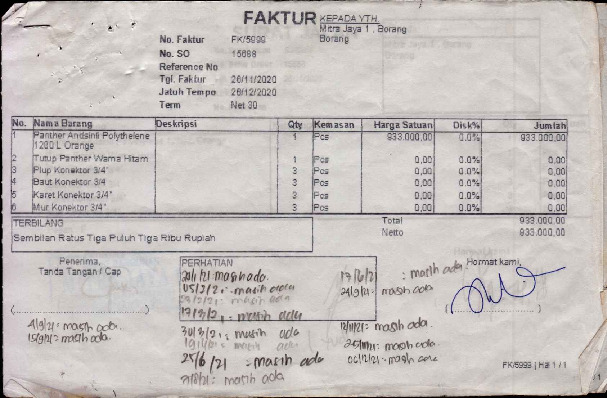 FAKTUR
KEPADA YTH.
Mitra Jaya 1 . Borang
Borang
No. Faktur FK/5999
No. SO 15688
Reference No
Tgl. Faktur 26/11/2020
Jatuh Tempo 26/12/2020
Term Net 30
No. Nama Barang Deskripsi Qty Kemasan Harga Satuan Disk% Jumlah
1 Panther Andsini Polythelene 1 Pcs 933.000,00 0.0% 933.000,00
1200 L Orange
2 Tutup Panther Warna Hitam 1 Pcs 0,00 0.0% 0,00
3 Plup Konektor 3/4" 3 Pcs 0,00 0.0% 0,00
4 Baut Konektor 3/4 3 Pcs 0,00 0.0% 0,00
5 Karet Konektor 3/4" 3 Pcs 0,00 0.0% 0,00
6 Mur Konektor 3/4" 3 Pcs 0,00 0.0% 0,00
TERBILANG
Sembilan Ratus Tiga Puluh Tiga Ribu Rupiah
Total 933.000,00
Netto 933.000,00
Penerima,
Tanda Tangan / Cap
PERHATIAN
Hormat kami,
masih ada.
17/6/21 : masih ada.
masih ada
24/9/21 : masih ada
masih ada
masih ada
4/9/21 : masih ada.
15/9/21 : masih ada.
masih ada
masih ada
masih ada.
masih ada
25/6/21 : masih ada
masih ada
FK/5999 | Hal 1 / 1